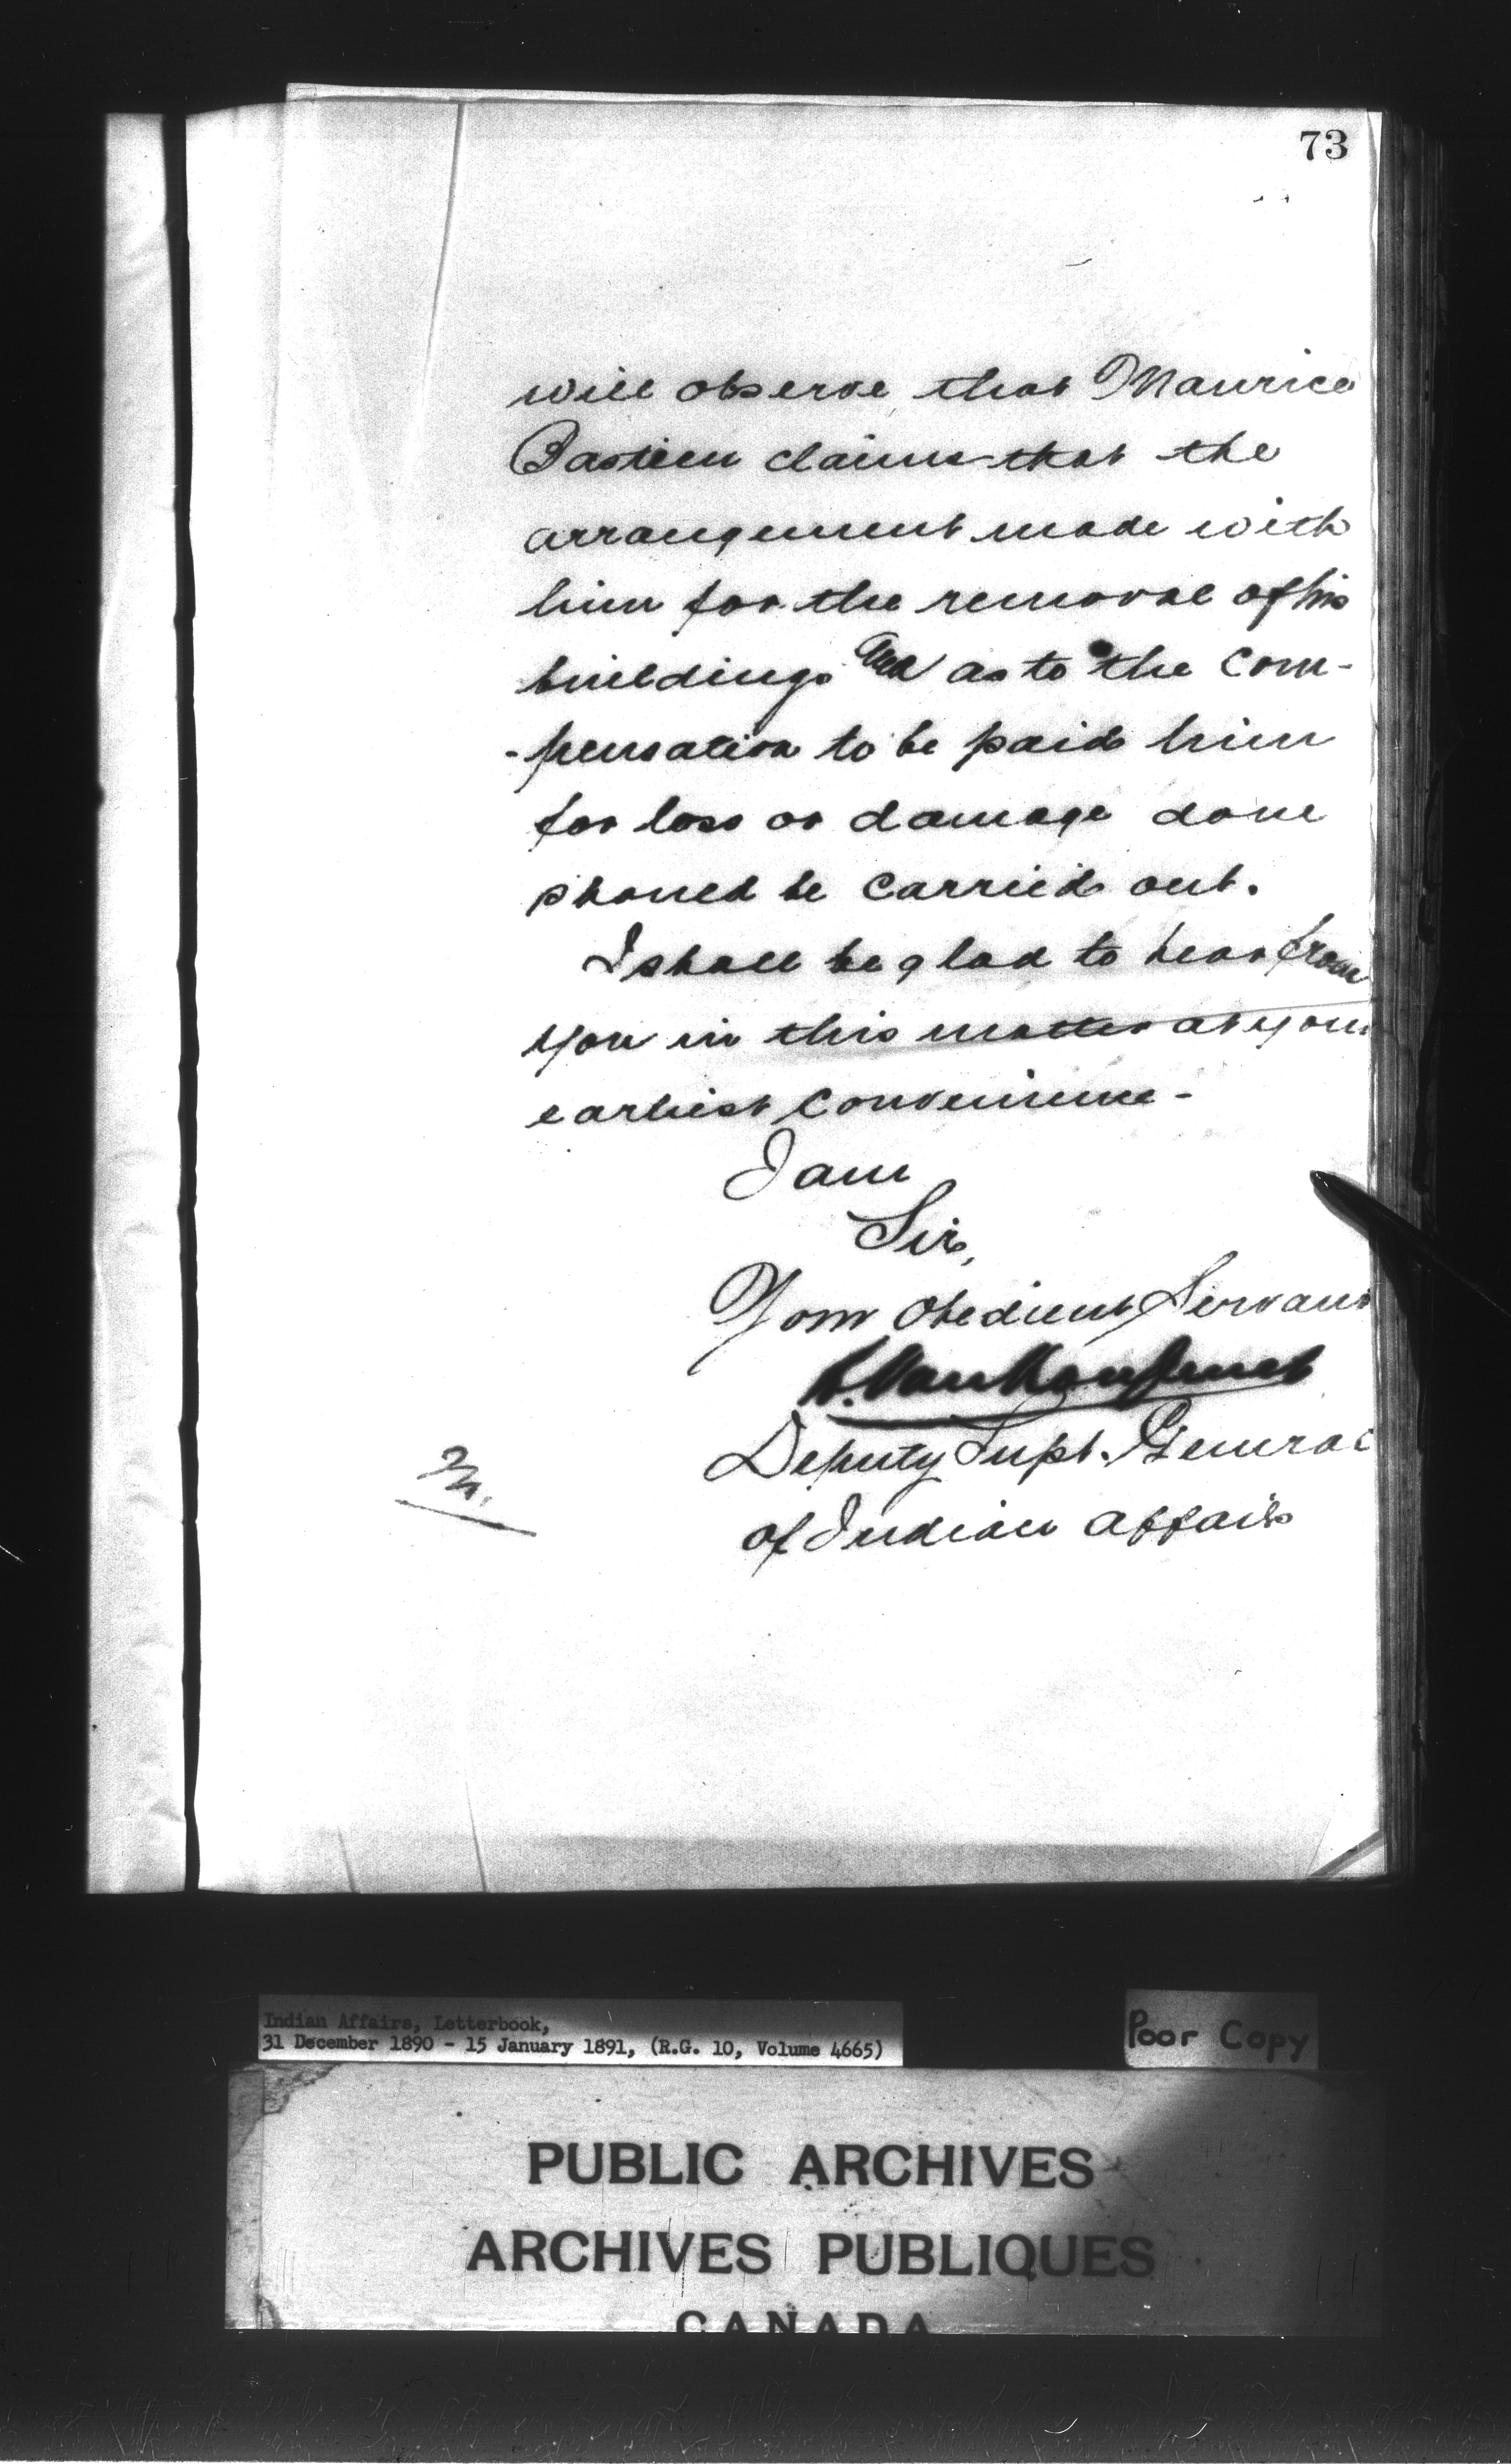 73
will observe that Maurice
Bastien claims that the
arrangement made with
him for the removal of his
buildings and as to the com-
-pensation to be paid him
for loss or damage done
should be carried out.
I shall be glad to hear from
you in this matter at your
earliest convenience -
I am
Sir,
Your obedient Servant
L. VanKoughnet
Deputy Supt. General
of Indian Affairs
Indian Affairs, Letterbook,
31 December 1890 - 15 January 1891, (R.G. 10, Volume 4665)
Poor Copy
PUBLIC ARCHIVES
ARCHIVES PUBLIQUES
CANADA